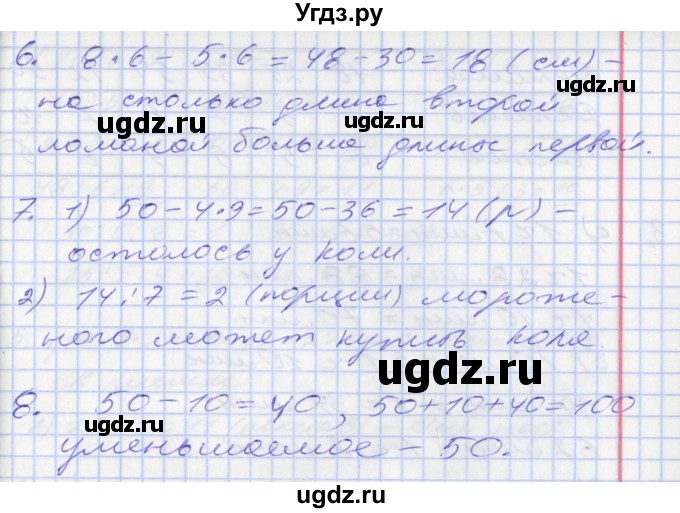 Угдз.ру
6. 8·6 - 5·6 = 48 - 30 = 18 (см) -
на столько длина второй
ugdz.ru ugdz.ru
ломаной больше длины первой.
7. 1) 50 - 4·9 = 50 - 36 = 14 (р) -
ugdz.ru
осталось у коли.
2) 14 : 7 = 2 (порции) мороже-
ного может купить коля.
ugdz.ru
8. 50 - 10 = 40, 50 + 10 + 40 = 100
ugdz.ru
уменьшаемое - 50.
ugdz.ru